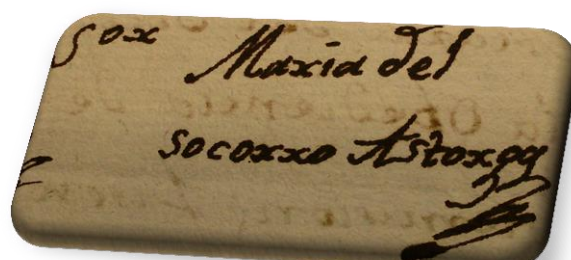 Sor Maria del
socorro Astorga